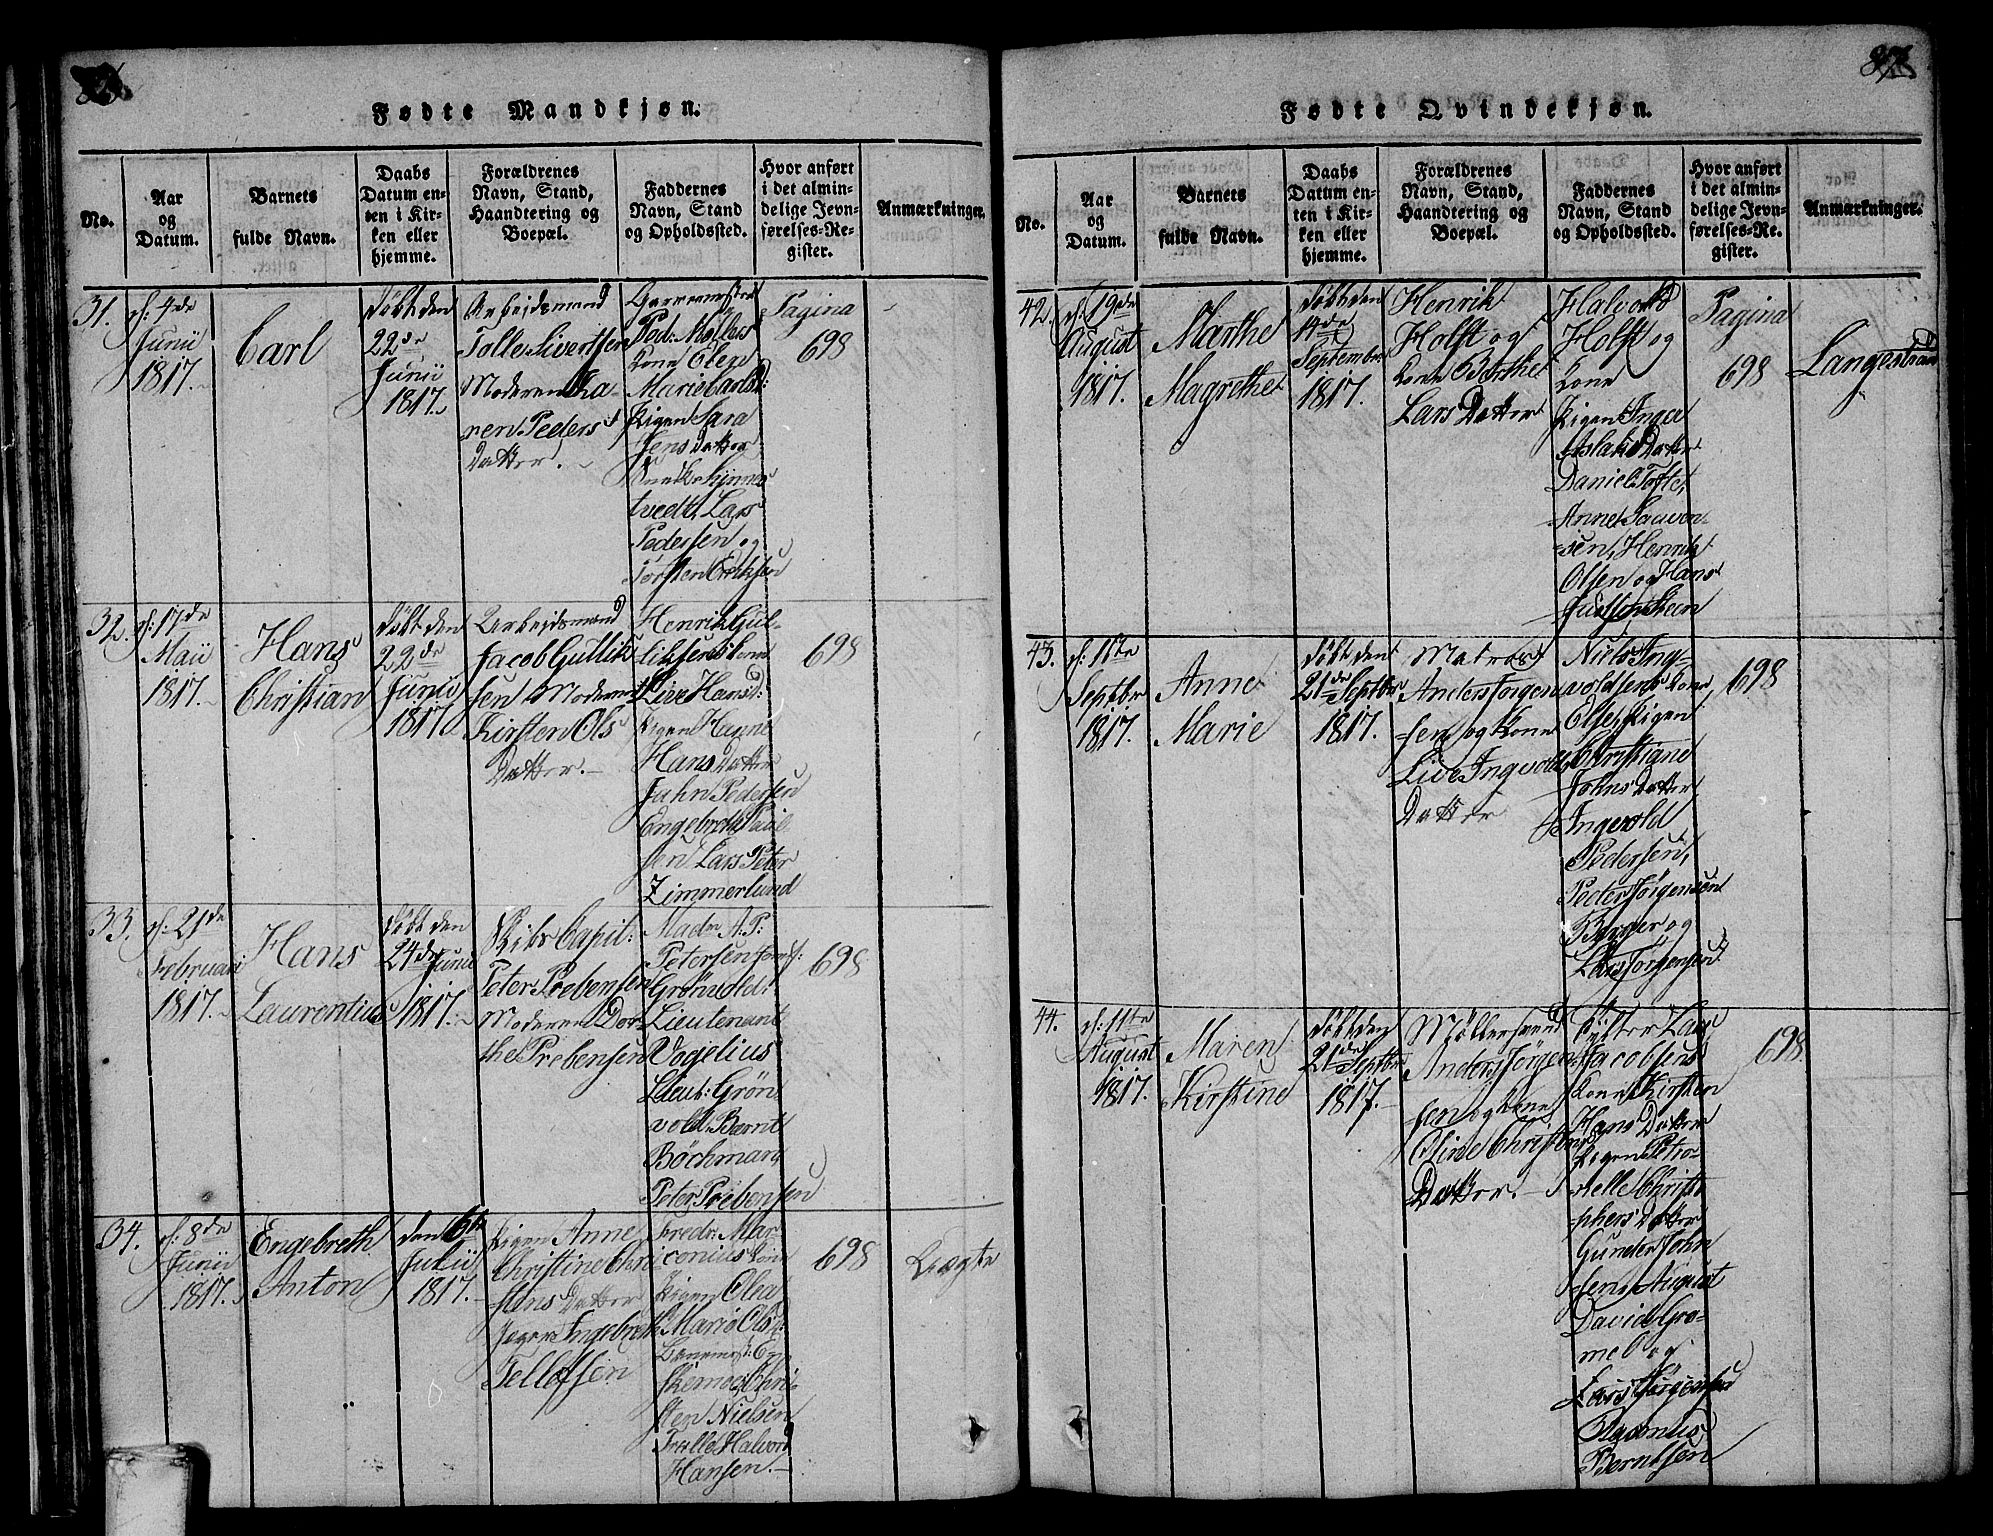 Fødte Mandkjøn.
No.
Aar
og
Datum.
Barnets
fulde Navn.
Daabs
Datum en-
ten i Kir-
ken eller
hjemme.
Forældrenes
Navn, Stand,
Haandtering og
Boepæl.
Faddernes
Navn, Stand
og Opholdssted.
Hvor anført
i det almin-
delige Jevn-
førelses-Re-
gister.
Anmærkninger.
31.
f: 4de
Junii
1817.
Carl
døbt den
22de
Junii
1817.
Arbejdsmand
Tolle Sivertsen
Moderen Ka-
ren Peders
Datter.
Ped: Møllers
Kone Olea
Marie Carlsd:
Pigen Sara
Jens Datter
tvedt, Lars
Pedersen og
Torsten Eriksen
Pagina
698
32.
f: 17de
Maii
1817.
Hans
Christian
døbt den
22de
Junii
1817
Arbejdsmand
Jacob Gullik
sen Moderen
Kirsten Ols
Datter.
Henrik Gul-
liksens Kone
Live Hansd:
Pigen Hanne
Hans Datter
Jahn Pedersen
Engebreth Paul
sen Lars Peter
Zimmerlund
698
33.
f: 21de
Februari
1817.
Hans
Laurentius
døbt den
24de Junii
1817.
Skibs Capit:
Peter Prebensen
Moderen Dor-
the Prebensen
Madm A. P:
Petersen
Grönvold:
Lieutenant
Vogelius
Lieut: Grön
vold Bernt
Böchman
Peter Prebensen
698
34.
f: 8de
Junii
1817.
Engebreth
Anton
den 6te
Julii
1817.
Pigen Anne
Christine Chri
stens Datter
Ingebreth
Tellefsen
Fredr: Mar-
conius Kone
Pigen Olea
Marie Olsd:
Chri-
sten Nielsen
Halvor
Hansen.
698
Uægte
Fødte Qvindekjøn.
No.
Aar
og
Datum.
Barnets
fulde Navn.
Daabs
Datum en-
ten i Kir-
ken eller
hjemme.
Forældrenes
Navn, Stand,
Haandtering og
Boepæl.
Faddernes
Navn, Stand
og Opholdssted.
Hvor anført
i det almin-
delige Jevn-
førelses-Re-
gister.
Anmærkninger.
42.
f: 19de
August
1817.
Marthe
Magrethe
døbt den
September
1817.
Henrik
Holst og
Kone Berthe
Lars Datter
Halvord
Holst og
Kone
Pigen Inger
Aslaks Datter
Daniel Tofte,
Anne Sauven-
sen, Henrik
Olsen og Hans
Pagina
698
Langestrand
43.
f: 11te
Septbr
1817.
Anne
Marie
døbt den
21de Septbr
1817.
Matros
Anders Jörgen
sen og Kone
Live Ingvolds
Datter
Niels Ing-
voldsens Kone
Else, Pigen
Christiane
Johns Datter
Ingevold
Pedersen,
Peder Jörgensen
Berger og
Lars Jörgensen
698
44.
f: 11te
August
1817.
Maren
Kirstine
døbt den
21de Septbr
1817.
Möllersvend
Anders Jörgen
sen og Kone
Oline Christens
Datter.
Lars
Jacobsens
Kone Kirsten
Hans Datter
Pigen Petro-
nelle Christo
phers Datter
Gunder John
sen August
David Gro-
mel og
Lars Jörgensen
Rasmus
Berntsen
698